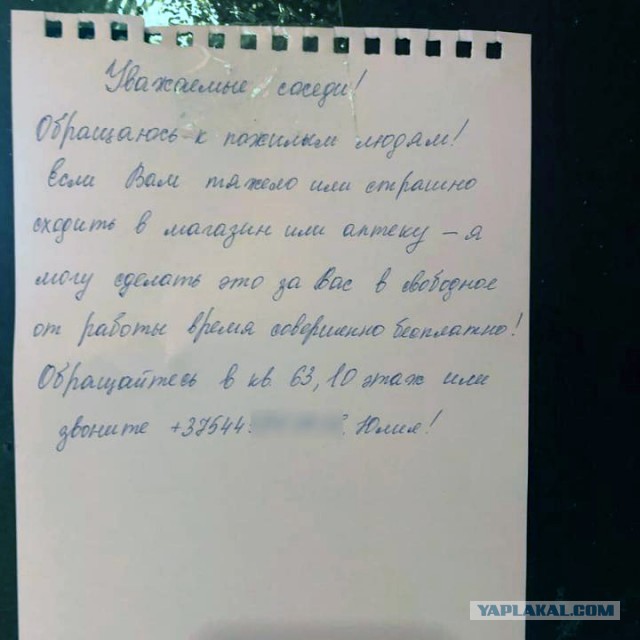 Уважаемые соседи!
Обращаюсь к пожилым людям!
Если Вам тяжело или страшно
сходить в магазин или аптеку – я
могу сделать это за Вас в свободное
от работы время совершенно бесплатно!
Обращайтесь в кв. 63, 10 этаж или
звоните +37544 Юлия!
YAPLAKAL.COM